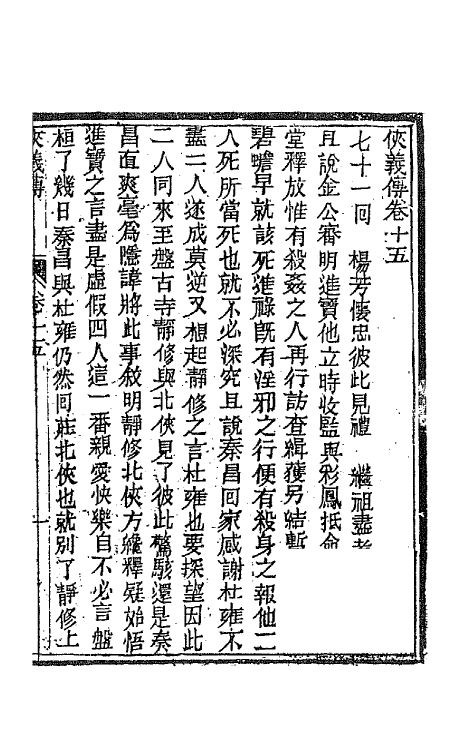 俠義傳卷十五
七十一回　楊芳懷忠彼此見禮　繼祖盡孝
且說金公審明進寶他立時收監與彩鳳抵命
堂釋放惟有殺姦之人再行訪查緝獲另結暫
碧蟾早就該死進祿旣有淫邪之行便有殺身之報他二
人死所當死也就不必深究且說秦昌回家感謝杜雍不
盡二人遂成莫逆又想起靜修之言杜雍也要探望因此
二人同來至盤古寺靜修與北俠見了彼此驚駭還是秦
昌直爽毫爲隱諱將此事敘明靜修北俠方纔釋疑始悟
進寶之言盡是虛假四人這一番親愛快樂自不必言盤
桓了幾日秦昌與杜雍仍然回莊北俠也就別了靜修上
俠義傳　卷十五　一